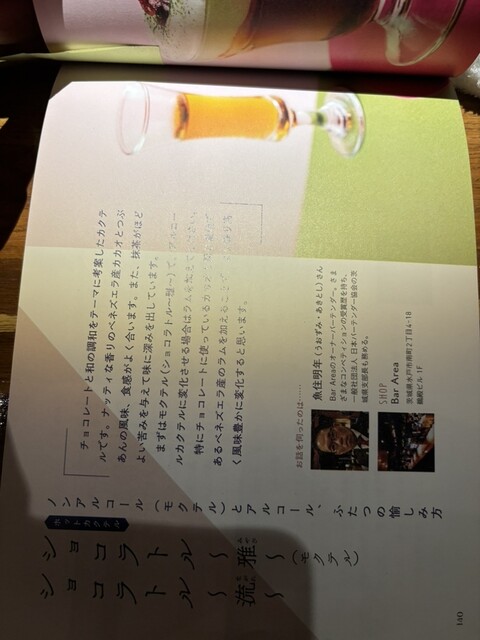 ショコラトル〜雅〜
(モクテル)
ショコラトル〜流〜
ホットカクテル
ノンアルコール(モクテル)とアルコール、ふたつの愉しみ方
チョコレートと和の調和をテーマに考案したカクテ
ルです。ナッティな香りのベネズエラ産カカオとつぶ
あんの風味、食感がよく合います。また、抹茶がほど
よい苦みを与えて味に深みを出しています。
まずはモクテル(ショコラトル〜雅〜)で、アルコー
ルカクテルに変化させる場合はラムを加えてください。
特にチョコレートに使っているカカオ
あるベネズエラ産のラムを加えること
く風味豊かに変化すると思います。
お話を伺ったのは……
魚住明年(うおずみ・あきとし)さん
Bar Areaのオーナーバーテンダー。さま
ざまなコンペティションの受賞歴を持ち、
一般社団法人 日本バーテンダー協会の茨
城県支部長も務める。
SHOP
Bar Area
茨城県水戸市南町2丁目4-18
ビル 1F
140